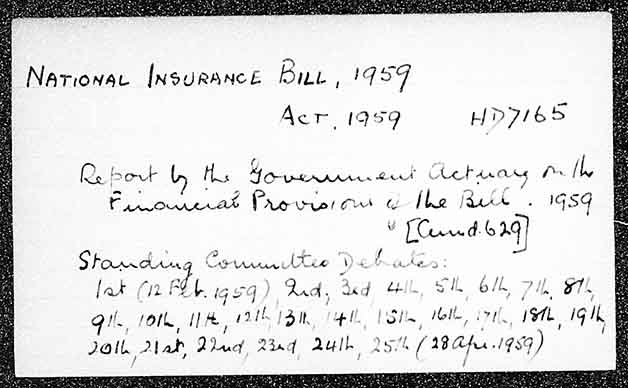 NATIONAL INSURANCE BILL, 1959
ACT, 1959 HD7165
Report by the Government Actuary on the
Financial Provisions of the Bill. 1959
[Cmnd.629]
Standing Committee Debates:
1st (12 Feb. 1959), 2nd, 3rd, 4th, 5th, 6th, 7th, 8th,
9th, 10th, 11th, 12th, 13th, 14th, 15th, 16th, 17th, 18th, 19th,
20th, 21st, 22nd, 23rd, 24th, 25th (28 Apr. 1959)